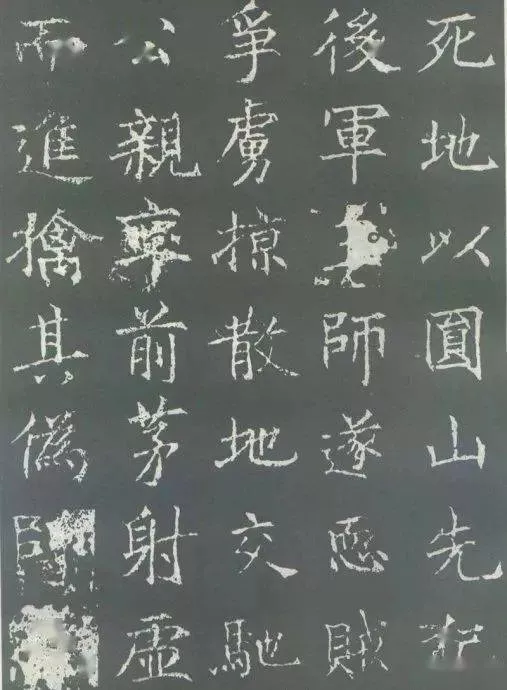 死地以圓山先
後軍師遂恧賊
爭虜掠散地交馳
公親率前茅射虛
而進擒其偽